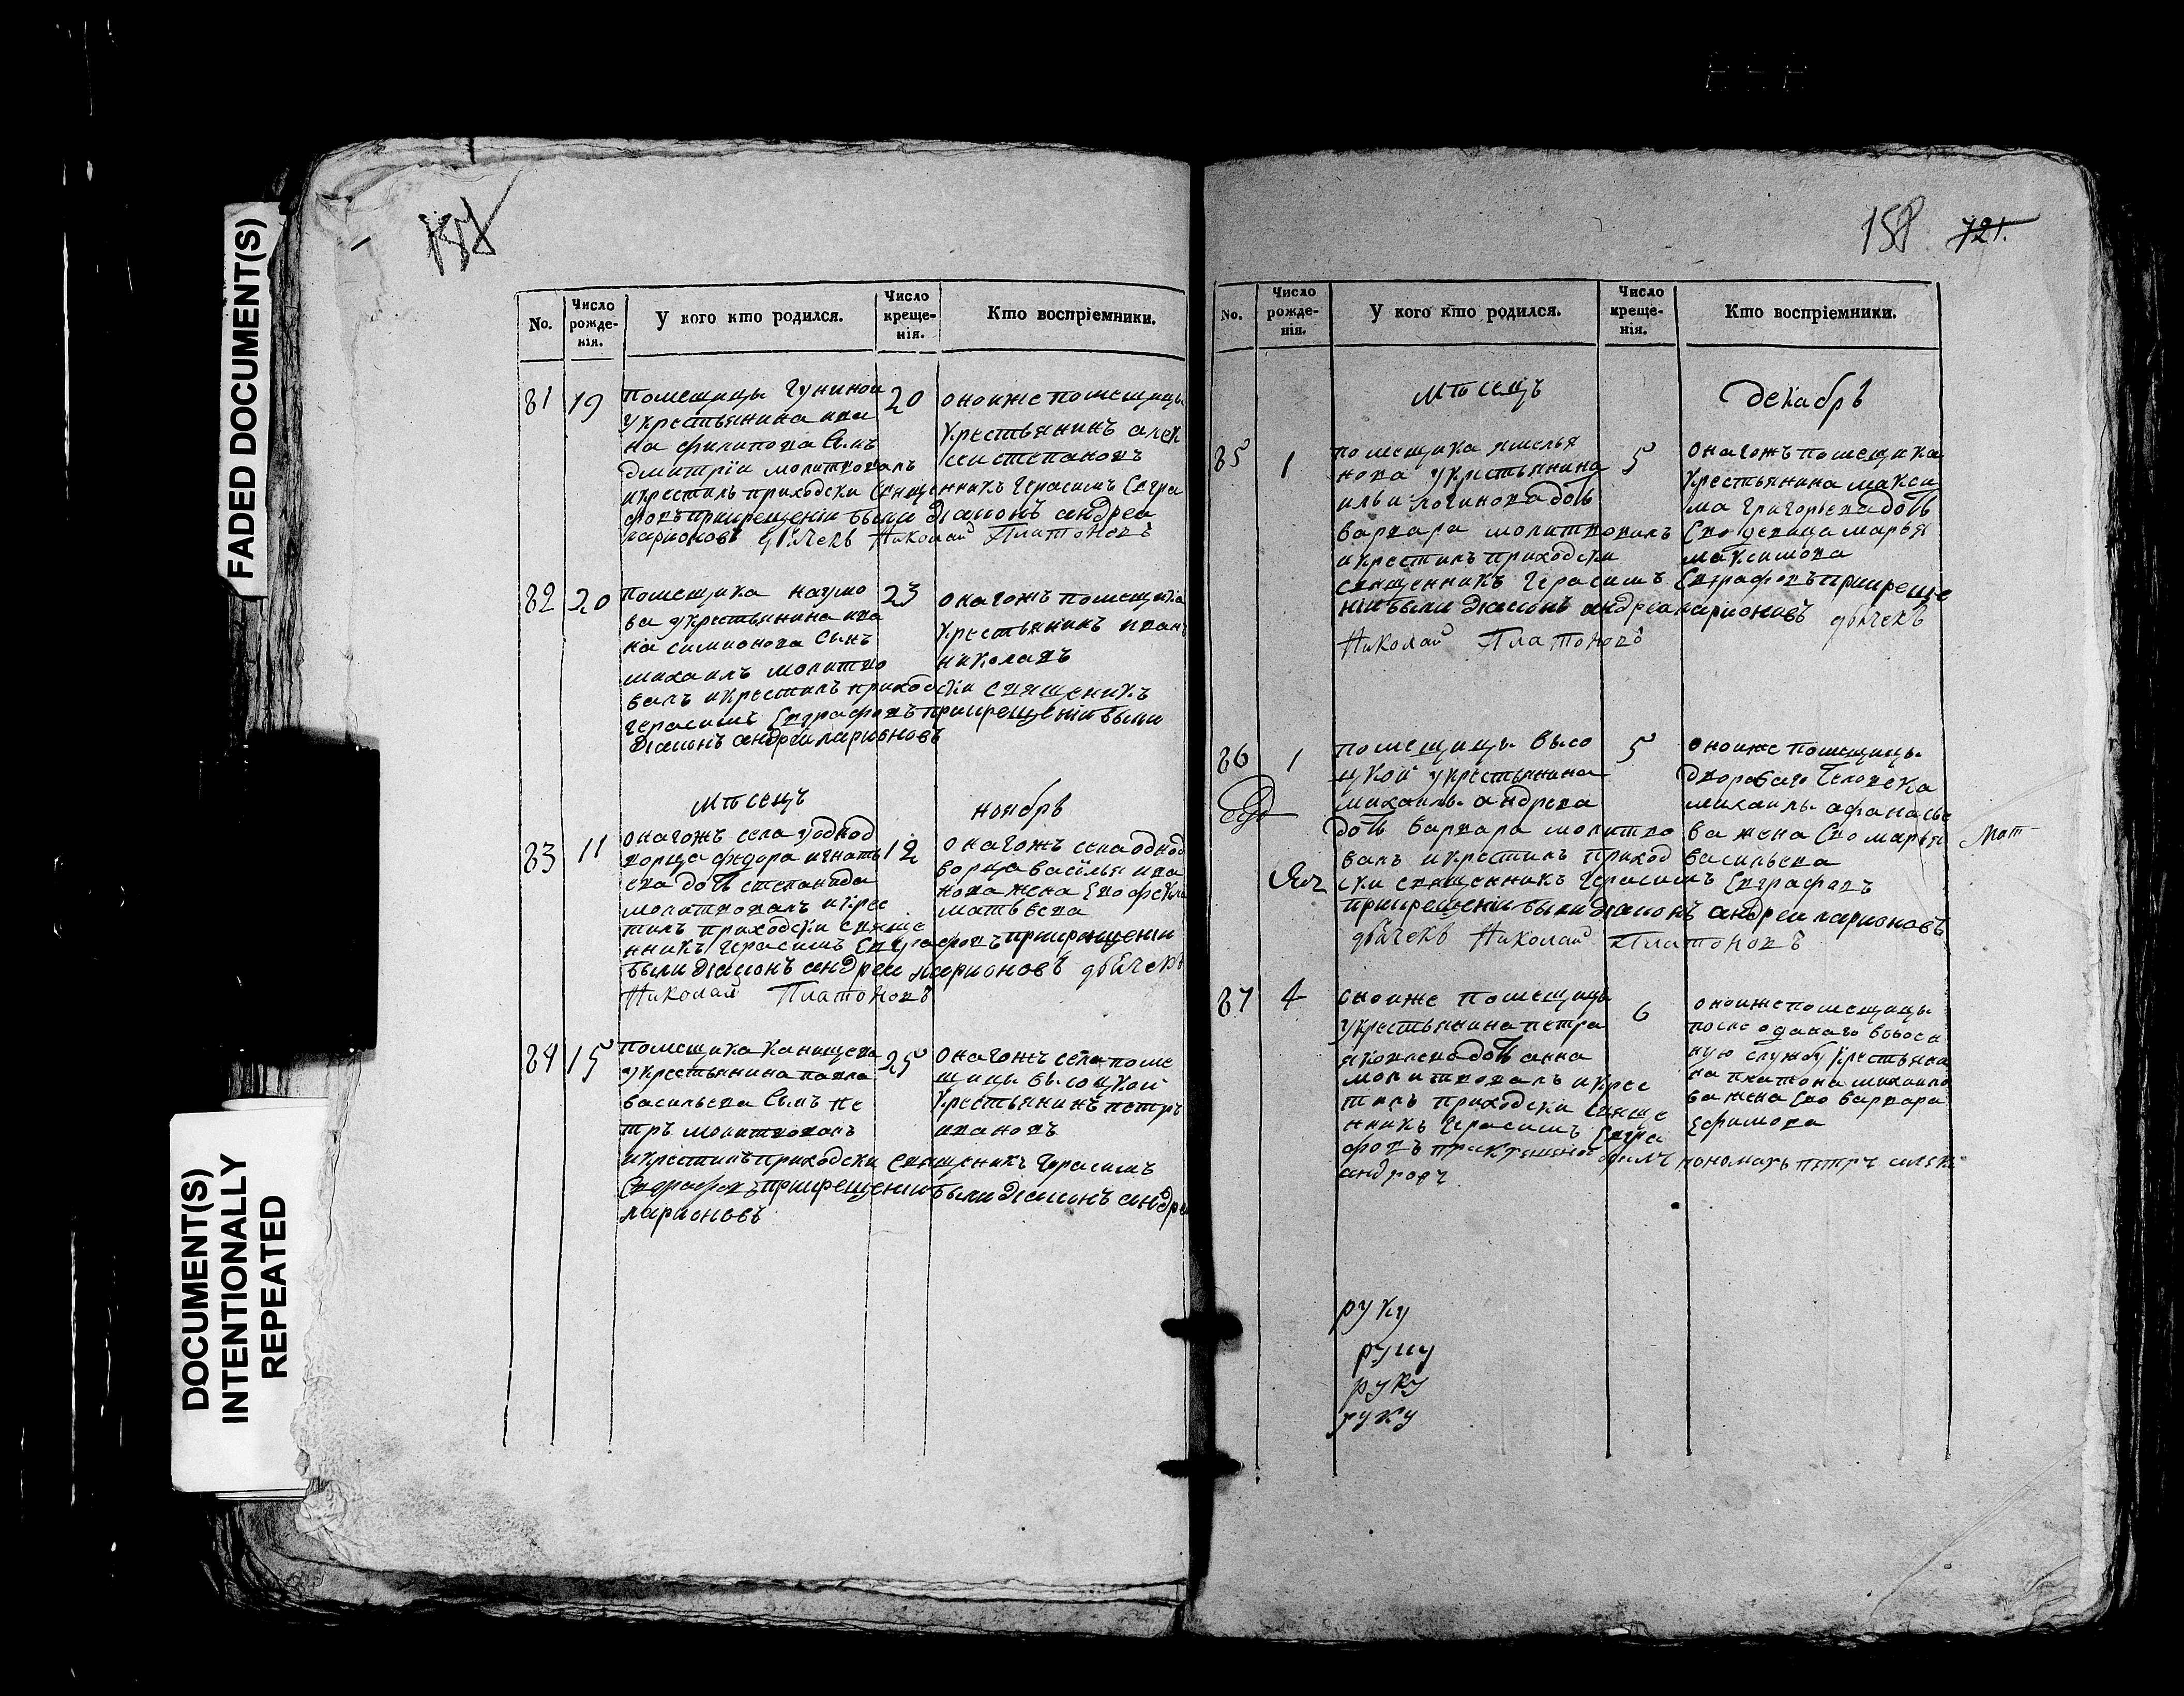 FADED DOCUMENT(S)
DOCUMENT(S)
INTENTIONALLY
REPEATED
No.
Число рожденія.
У кого кто родился.
Число крещенія.
Кто воспріемники.
81 19
помещицы Гуниной
укрестьянина ива
на филипова Сынъ
дмитріи молитвовалъ
икрестилъ приходски Свнщенникъ Герасимъ Евгра
фовъ прикрещеніи были діаконъ андреи
ларионовъ дьячекъ Николай Платоновъ
20
оноиже помещицы
крестьянинъ алек
сеи степановъ
82 20
помещика наумо
ва укрестьянина ива
на симионова Сынъ
михаилъ молитво
валъ икрестилъ приходски священикъ
Герасимъ Евграфовъ прикрещеніи были
діаконъ андреи ларионовъ
23
онагожъ помещика
крестьянинъ иванъ
николаевъ
мѣсецъ ноябрь
83 11
онагожъ села уоднод
ворца федора игнать
ева дочь степанида
молитвовалъ икрес
тилъ приходски свяще
нникъ Герасимъ Евграфовъ прикрещеніи
были діаконъ андреи ларионовъ дьячекъ
Николай Платоновъ
12
онагожъ села однод
ворца василья ива
нова жена Ево фекла
матвѣева
84 15
помещика Канищева
укрестьянина павла
васильева Сынъ пе
тръ молитвовалъ
икрестилъ приходски Священикъ Герасимъ
Евграфовъ прикрещеніи были діаконъ андреи
ларионовъ
25
онагожъ села поме
щицы высоцкой
крестьянинъ петръ
ивановъ
158 721.
No.
Число рожденія.
У кого кто родился.
Число крещенія.
Кто воспріемники.
мѣсецъ декабрь
85 1
помещика ямелья
нова укрестьянина
ильи логинова дочь
варвара молитвовилъ
икрестилъ приходски
священникъ Герасимъ Евграфовъ прикреще
ніи были діаконъ андреи ларионовъ дьячекъ
Николай Платоновъ
5
онагожъ помещика
крестьянина макси
ма григорьева дочь
Ево девица марья
максимова
86 1
помещицы высо
цкой укрестьянина
михаилы андреева
дочь варвара молитво
валъ икрестилъ приход
ски священникъ Герасимъ Евграфовъ
прикрещеніи были діаконъ андреи ларионовъ
дьячекъ Николай Платоновъ
5
оноиже помещицы
дворового человека
михаилы афанасье
ва жена Ево марья
васильева
87 4
оноиже помещицы
укрестьянина петра
яковлева дочь анна
молитвовалъ икрес
тилъ приходски Свяще
нникъ Герасимъ Евгра
фовъ прикрещеніи былъ пономарь петръ алекс
андровъ
6
оноиже помещицы
после оданаго ввоен
ную службу Крестьяни
на платона михаило
ва жена Ево варвара
Ефимова
руку
руку
руку
руку